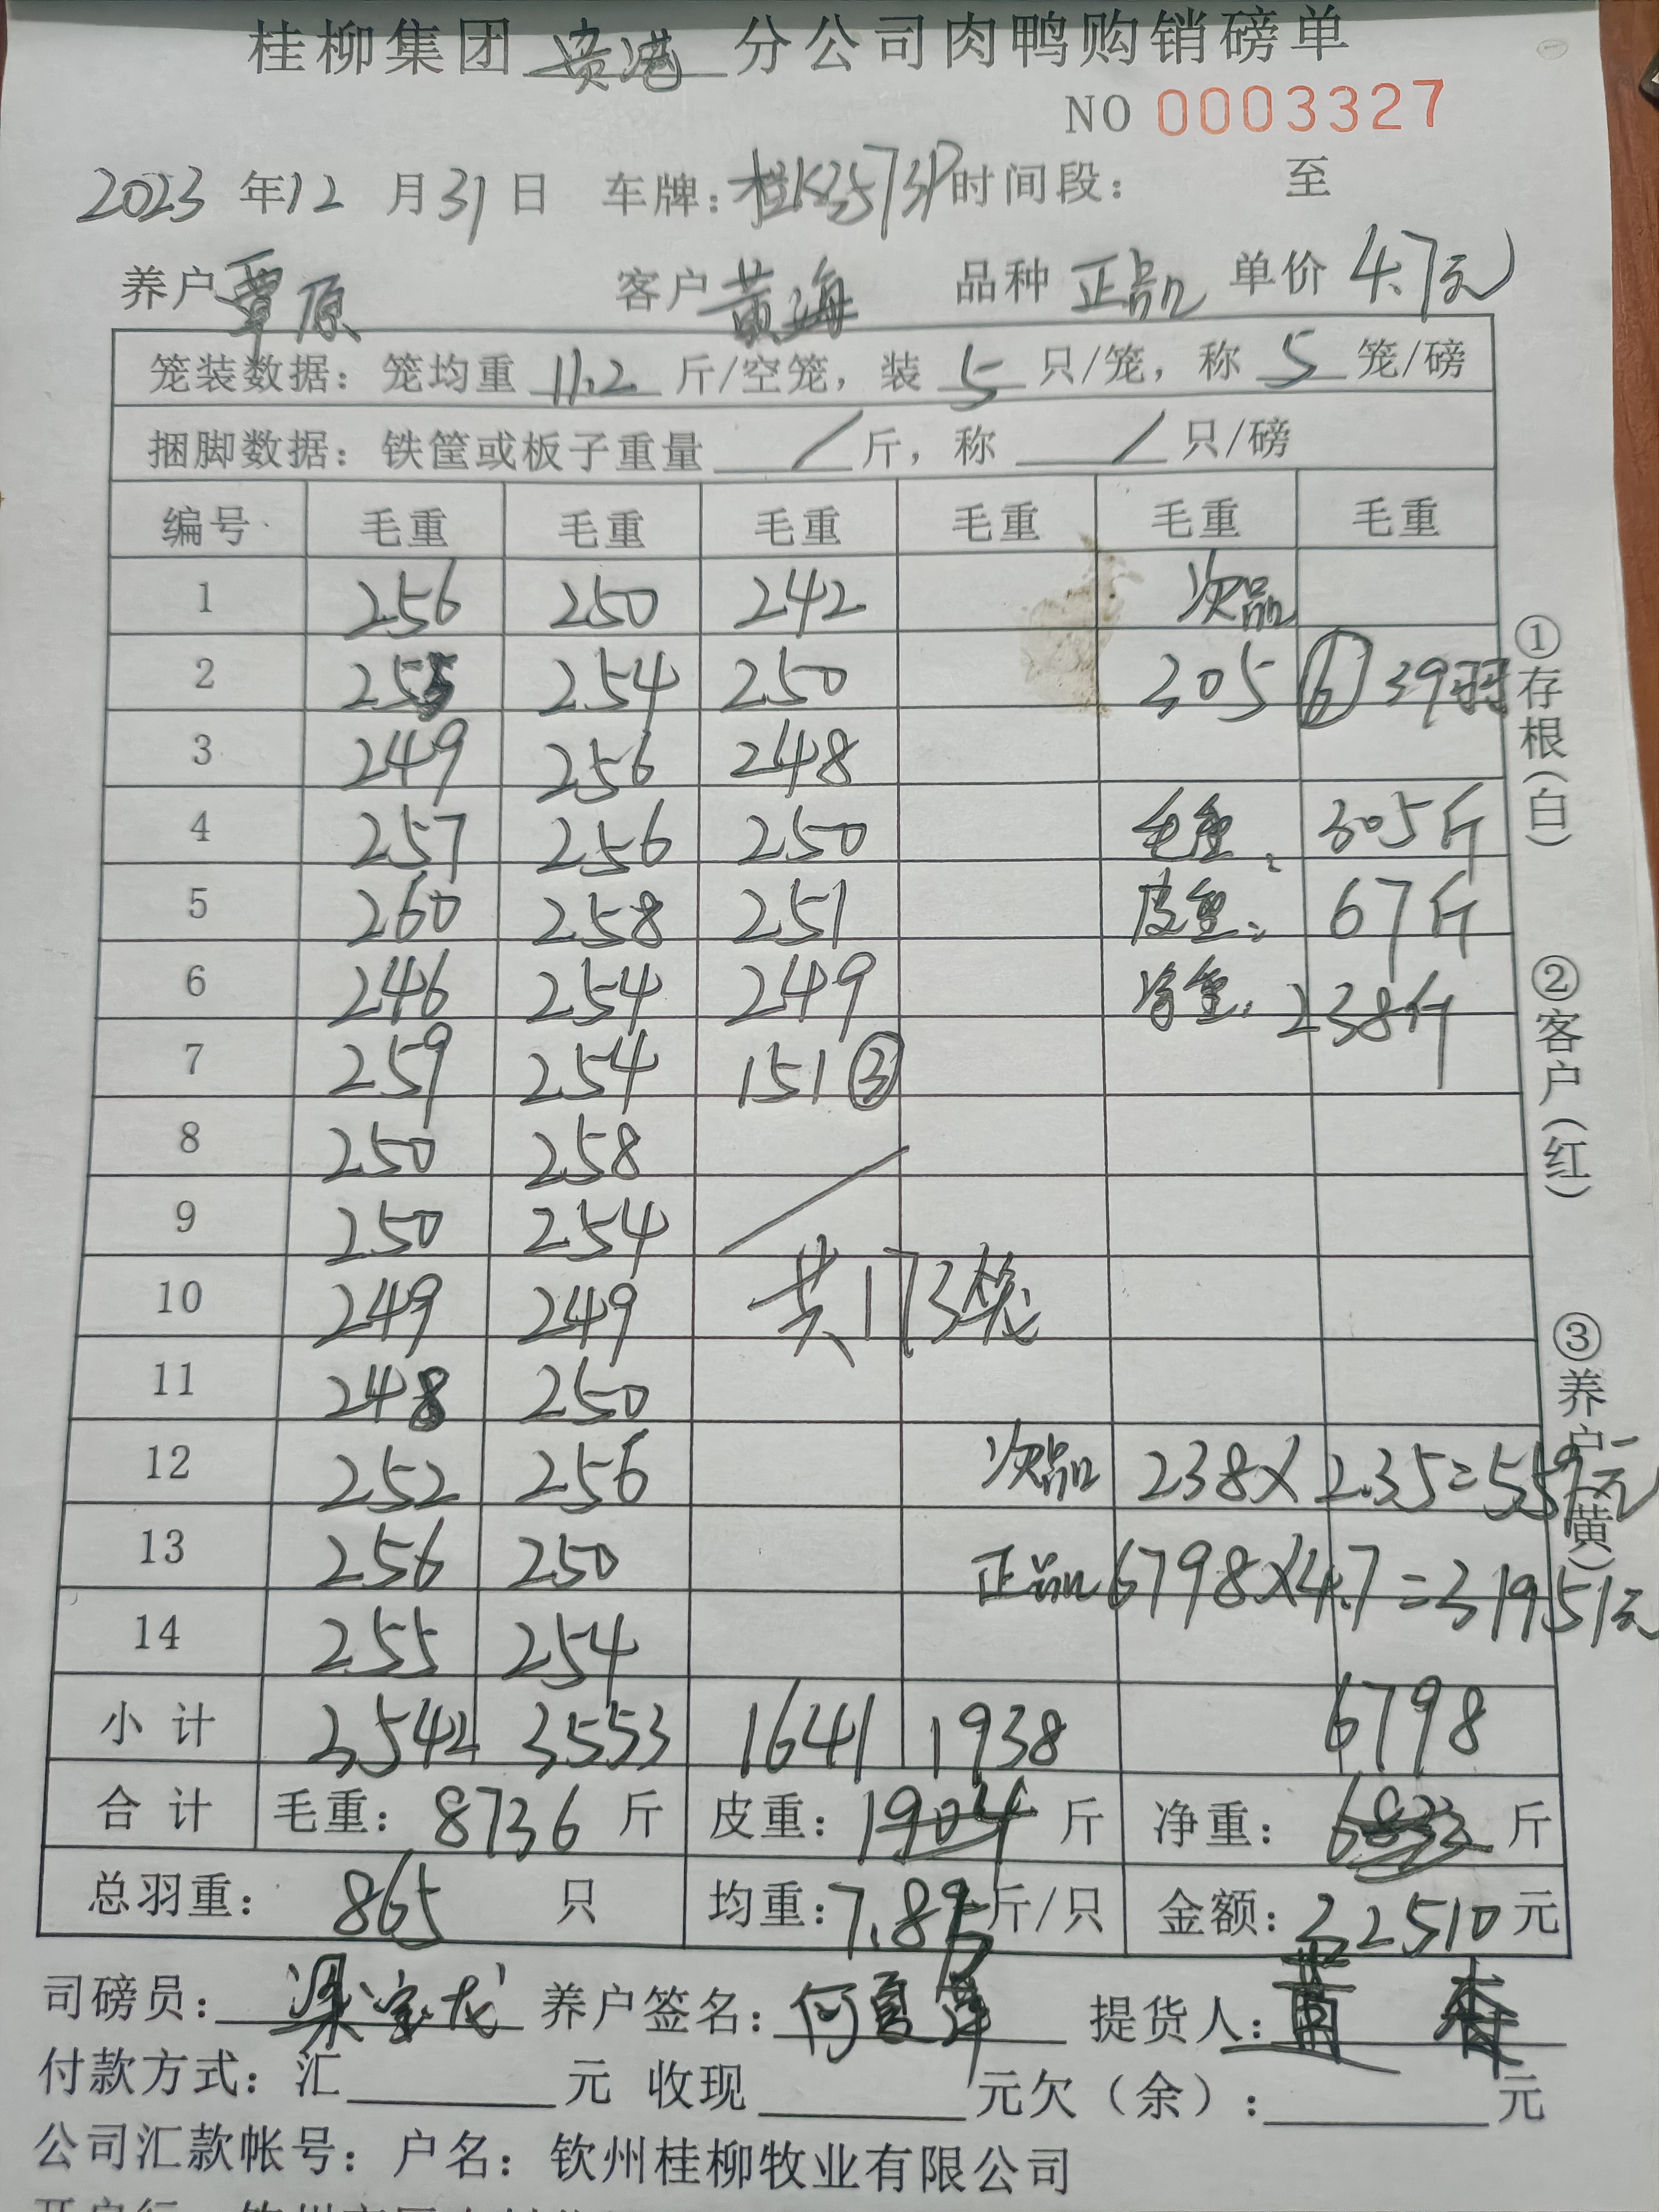 桂柳集团 贵港 分公司肉鸭购销磅单
NO 0003327
2023 年 12 月 31 日 车牌: 桂K2573P 时间段: 至
养户 覃原 客户 黄海 品种 正品 单价 4.7元
笼装数据: 笼均重 11.2 斤/空笼, 装 5 只/笼, 称 5 笼/磅
捆脚数据: 铁筐或板子重量 / 斤, 称 / 只/磅
编号 毛重 毛重 毛重 毛重 毛重 毛重
1 256 250 242 次品
2 255 254 250 305 ⑥ 39羽
3 249 256 248
4 257 256 250 毛重: 305斤
5 260 258 251 皮重: 67斤
6 246 254 249 净重: 238斤
7 259 254 151 ③
8 250 258
9 250 254
10 249 249 共173笼
11 248 250
12 252 256 次品 238×2.35=559元
13 256 250 正品 6798×4.7=31951元
14 255 254
小计 3542 3553 1641 1938 6798
合计 毛重: 8736 斤 皮重: 1904 斤 净重: 6832 斤
总羽重: 865 只 均重: 7.85 斤/只 金额: 32510 元
司磅员: 梁宝龙 养户签名: 提货人: 黄
付款方式: 汇 元 收现 元欠(余): 元
公司汇款帐号: 户名: 钦州桂柳牧业有限公司
①存根(白) ②客户(红) ③养户(黄)